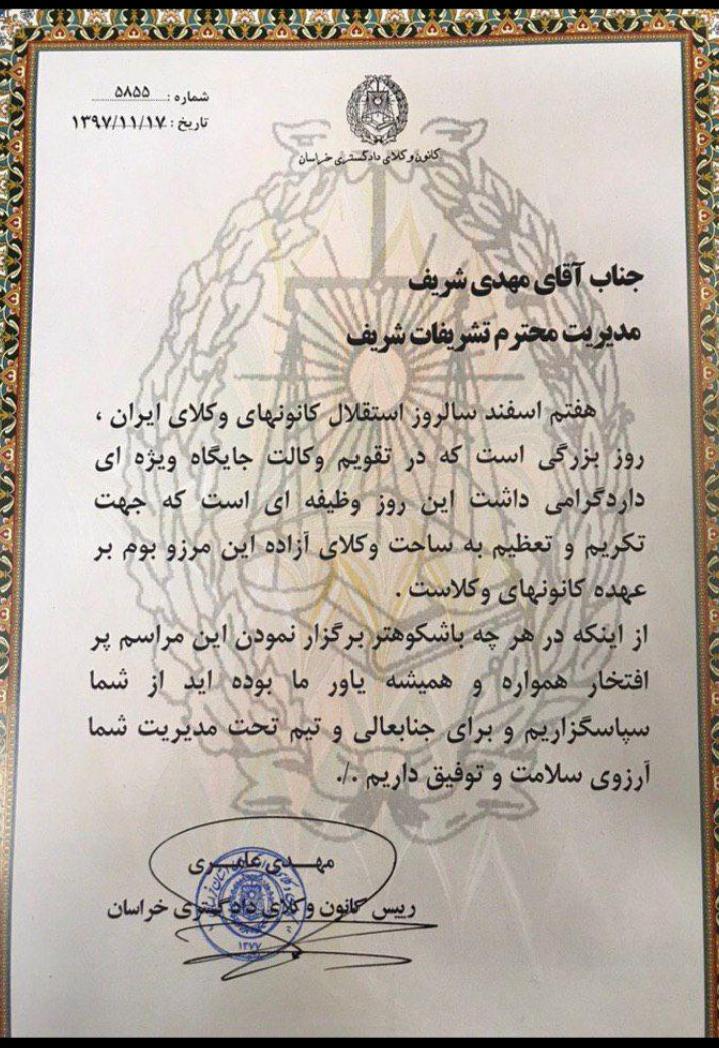 شماره : ۵۸۵۵
تاریخ : ۱۳۹۷/۱۱/۱۷
کانون وکلای دادگستری خراسان
جناب آقای مهدی شریف
مدیریت محترم تشریفات شریف
هفتم اسفند سالروز استقلال کانونهای وکلای ایران ،
روز بزرگی است که در تقویم وکالت جایگاه ویژه ای
داردگرامی داشت این روز وظیفه ای است که جهت
تکریم و تعظیم به ساحت وکلای آزاده این مرزو بوم بر
عهده کانونهای وکلاست .
از اینکه در هر چه باشکوهتر برگزار نمودن این مراسم پر
افتخار همواره و همیشه یاور ما بوده اید از شما
سپاسگزاریم و برای جنابعالی و تیم تحت مدیریت شما
آرزوی سلامت و توفیق داریم ./.
مهـــدی عامـــری
رییس کانون وکلای دادگستری خراسان
۱۳۷۷